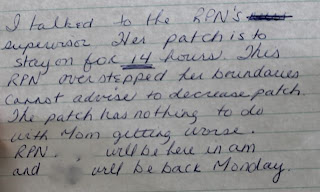 I talked to the RPN's
supervisor Her patch is to
stay on for 14 hours. This
RPN overstepped her boundaries
cannot advise to decrease patch.
The patch has nothing to do
with Mom getting worse.
RPN. . will be here in am
and will be back Monday.